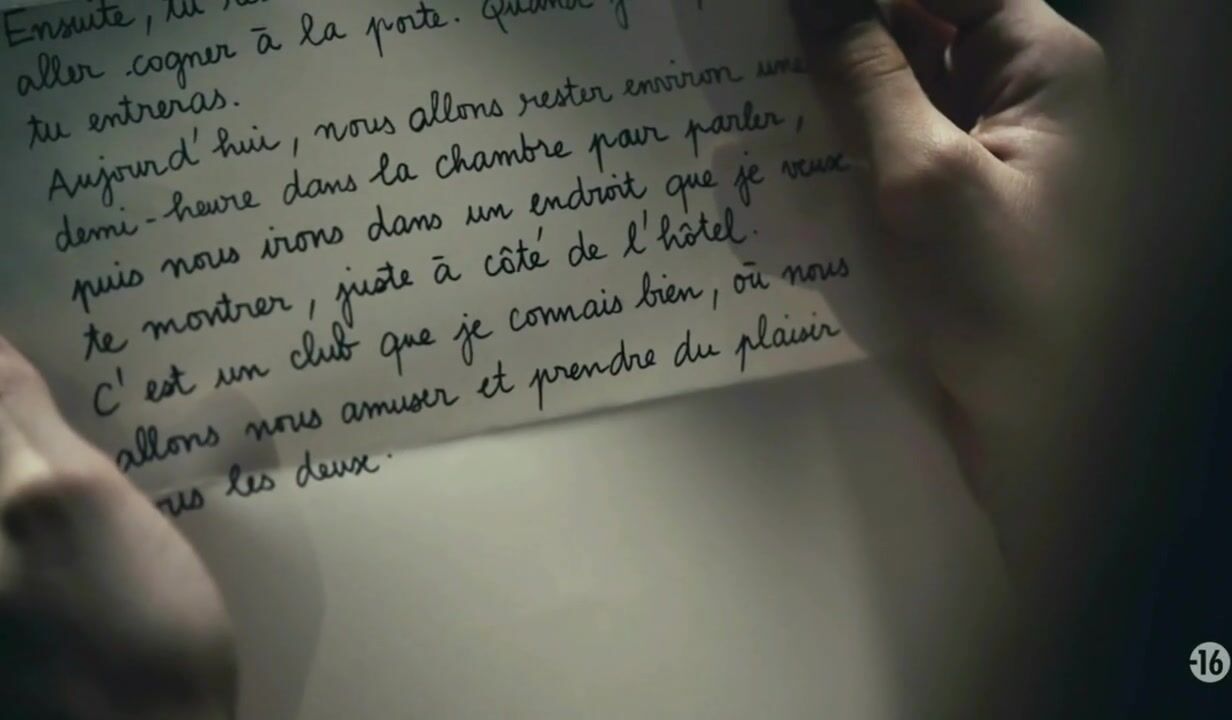 Ensuite, tu
aller cogner à la porte. Quand
tu entreras.
Aujourd'hui, nous allons rester environ une
demi-heure dans la chambre pour parler,
puis nous irons dans un endroit que je veux
te montrer, juste à côté de l'hôtel.
C'est un club que je connais bien, où nous
allons nous amuser et prendre du plaisir
les deux.
-16